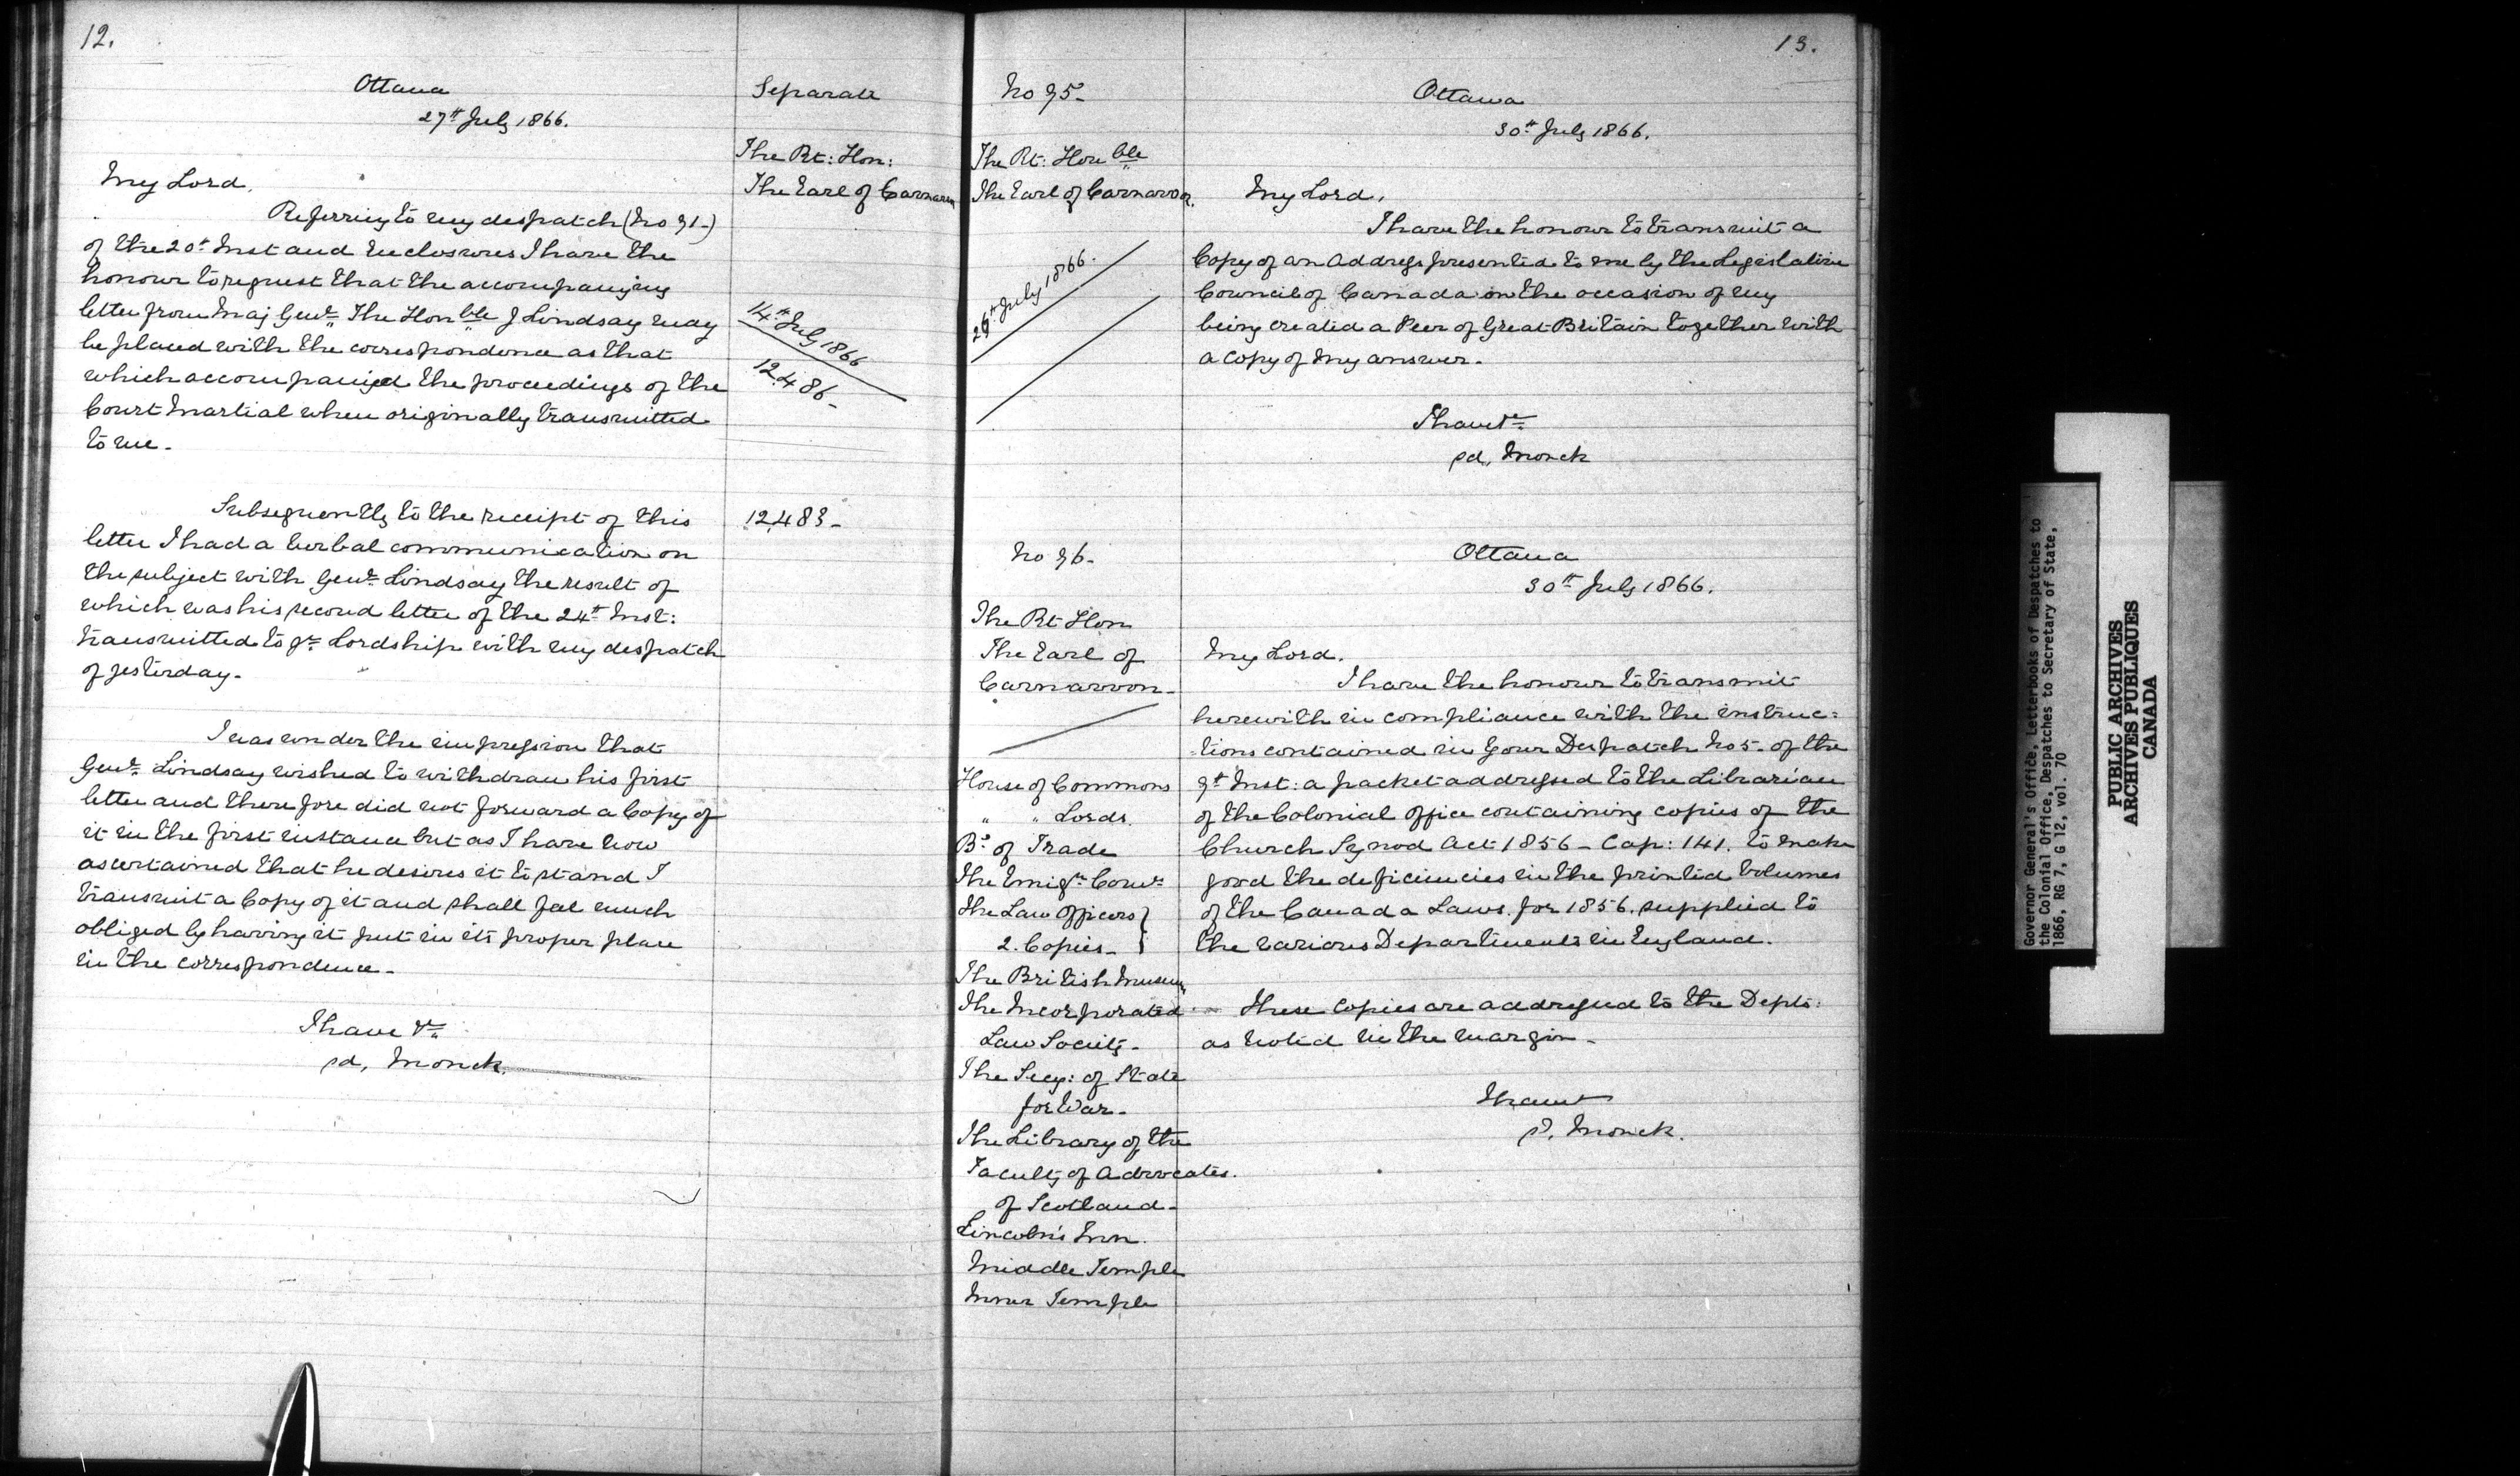 12.
Ottawa
27th July 1866.
Separate
The Rt: Hon:
The Earl of Carnarvon
My Lord,
Referring to my despatch (No 91-)
of the 20th Inst and enclosures I have the
honour to request that the accompanying
letter from Maj Genl. The Honble J Lindsay may
be placed with the correspondence as that
which accompanied the proceedings of the
Court Martial when originally transmitted
to me.
14th July 1866
12,486-
Subsequently to the receipt of this
letter I had a verbal communication on
the subject with Genl. Lindsay the result of
which was his second letter of the 24th Inst:
transmitted to yr. Lordship with my despatch
of yesterday.
12,483-
I was under the impression that
Genl. Lindsay wished to withdraw his first
letter and therefore did not forward a Copy of
it in the first instance but as I have now
ascertained that he desires it to stand I
transmit a Copy of it and shall feel much
obliged by having it put in its proper place
in the correspondence-
I have &c
sd, Monck.
13.
No 95-
Ottawa
30th July 1866.
The Rt: Honble
The Earl of Carnarvon.
My Lord,
I have the honour to transmit a
Copy of an Address presented to me by the Legislative
Council of Canada on the occasion of my
being created a Peer of Great Britain together with
a copy of my answer.
July 1866.
I have &c
sd, Monck
No 96-
Ottawa
30th July 1866.
The Rt Hon
The Earl of
Carnarvon-
My Lord.
I have the honour to transmit
herewith in compliance with the instruc=
=tions contained in your Despatch No 5- of the
9th Inst: a packet addressed to the Librarian
of the Colonial Office containing copies of the
Church Synod Act 1856 - Cap: 141. to make
good the deficiencies in the printed volumes
of the Canada Laws for 1856. supplied to
the various Departments in England.
These Copies are addressed to the Depts:
as noted in the margin-
I have &c
s. Monck.
House of Commons
" " Lords
Bd of Trade
The Emign Comrs
The Law Officers }
2. Copies- }
The British Museum
The Incorporated
Law Society-
The Secy: of State
for War-
The Library of the
Faculty of Advocates.
of Scotland-
Lincoln's Inn.
Middle Temple
Inner Temple
Governor General's Office, Letterbooks of Despatches to
the Colonial Office, Despatches to Secretary of State,
1866, RG 7, G 12, vol. 70
PUBLIC ARCHIVES
ARCHIVES PUBLIQUES
CANADA